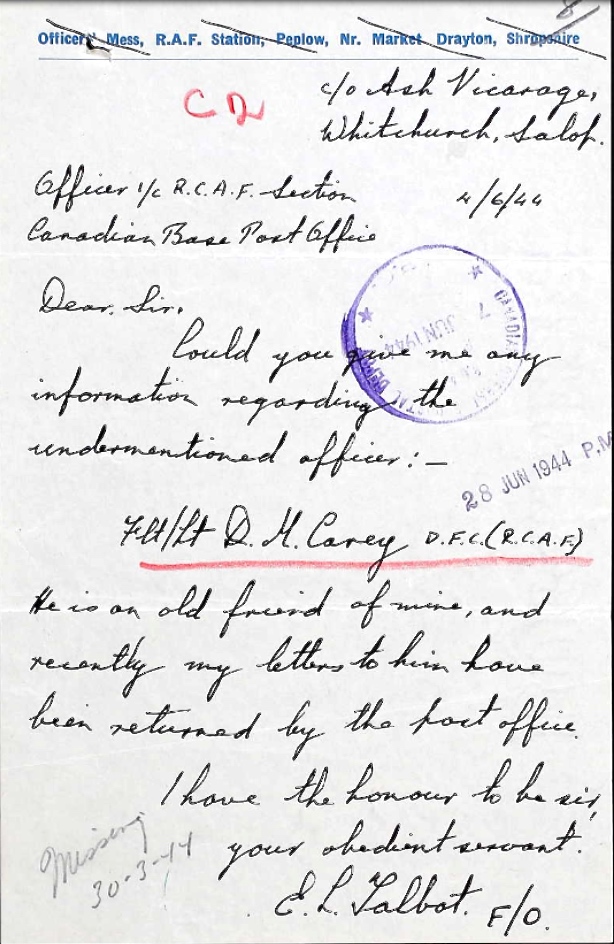 8
Officers' Mess, R.A.F. Station, Peplow, Nr. Market Drayton, Shropshire
CR
c/o Ash Vicarage,
Whitchurch, Salop.
Officer i/c R.C.A.F. Section
4/6/44
Canadian Base Post Office
Dear Sir,
Could you give me any
information regarding the
undermentioned officer:—
7 JUN 1944
28 JUN 1944 P.M
Flt/Lt D. M. Carey D.F.C. (R.C.A.F)
He is an old friend of mine, and
recently my letters to him have
been returned by the post office.
I have the honour to be sir,
your obedient servant.
Missing
30-3-44
E. L. Talbot. F/O.